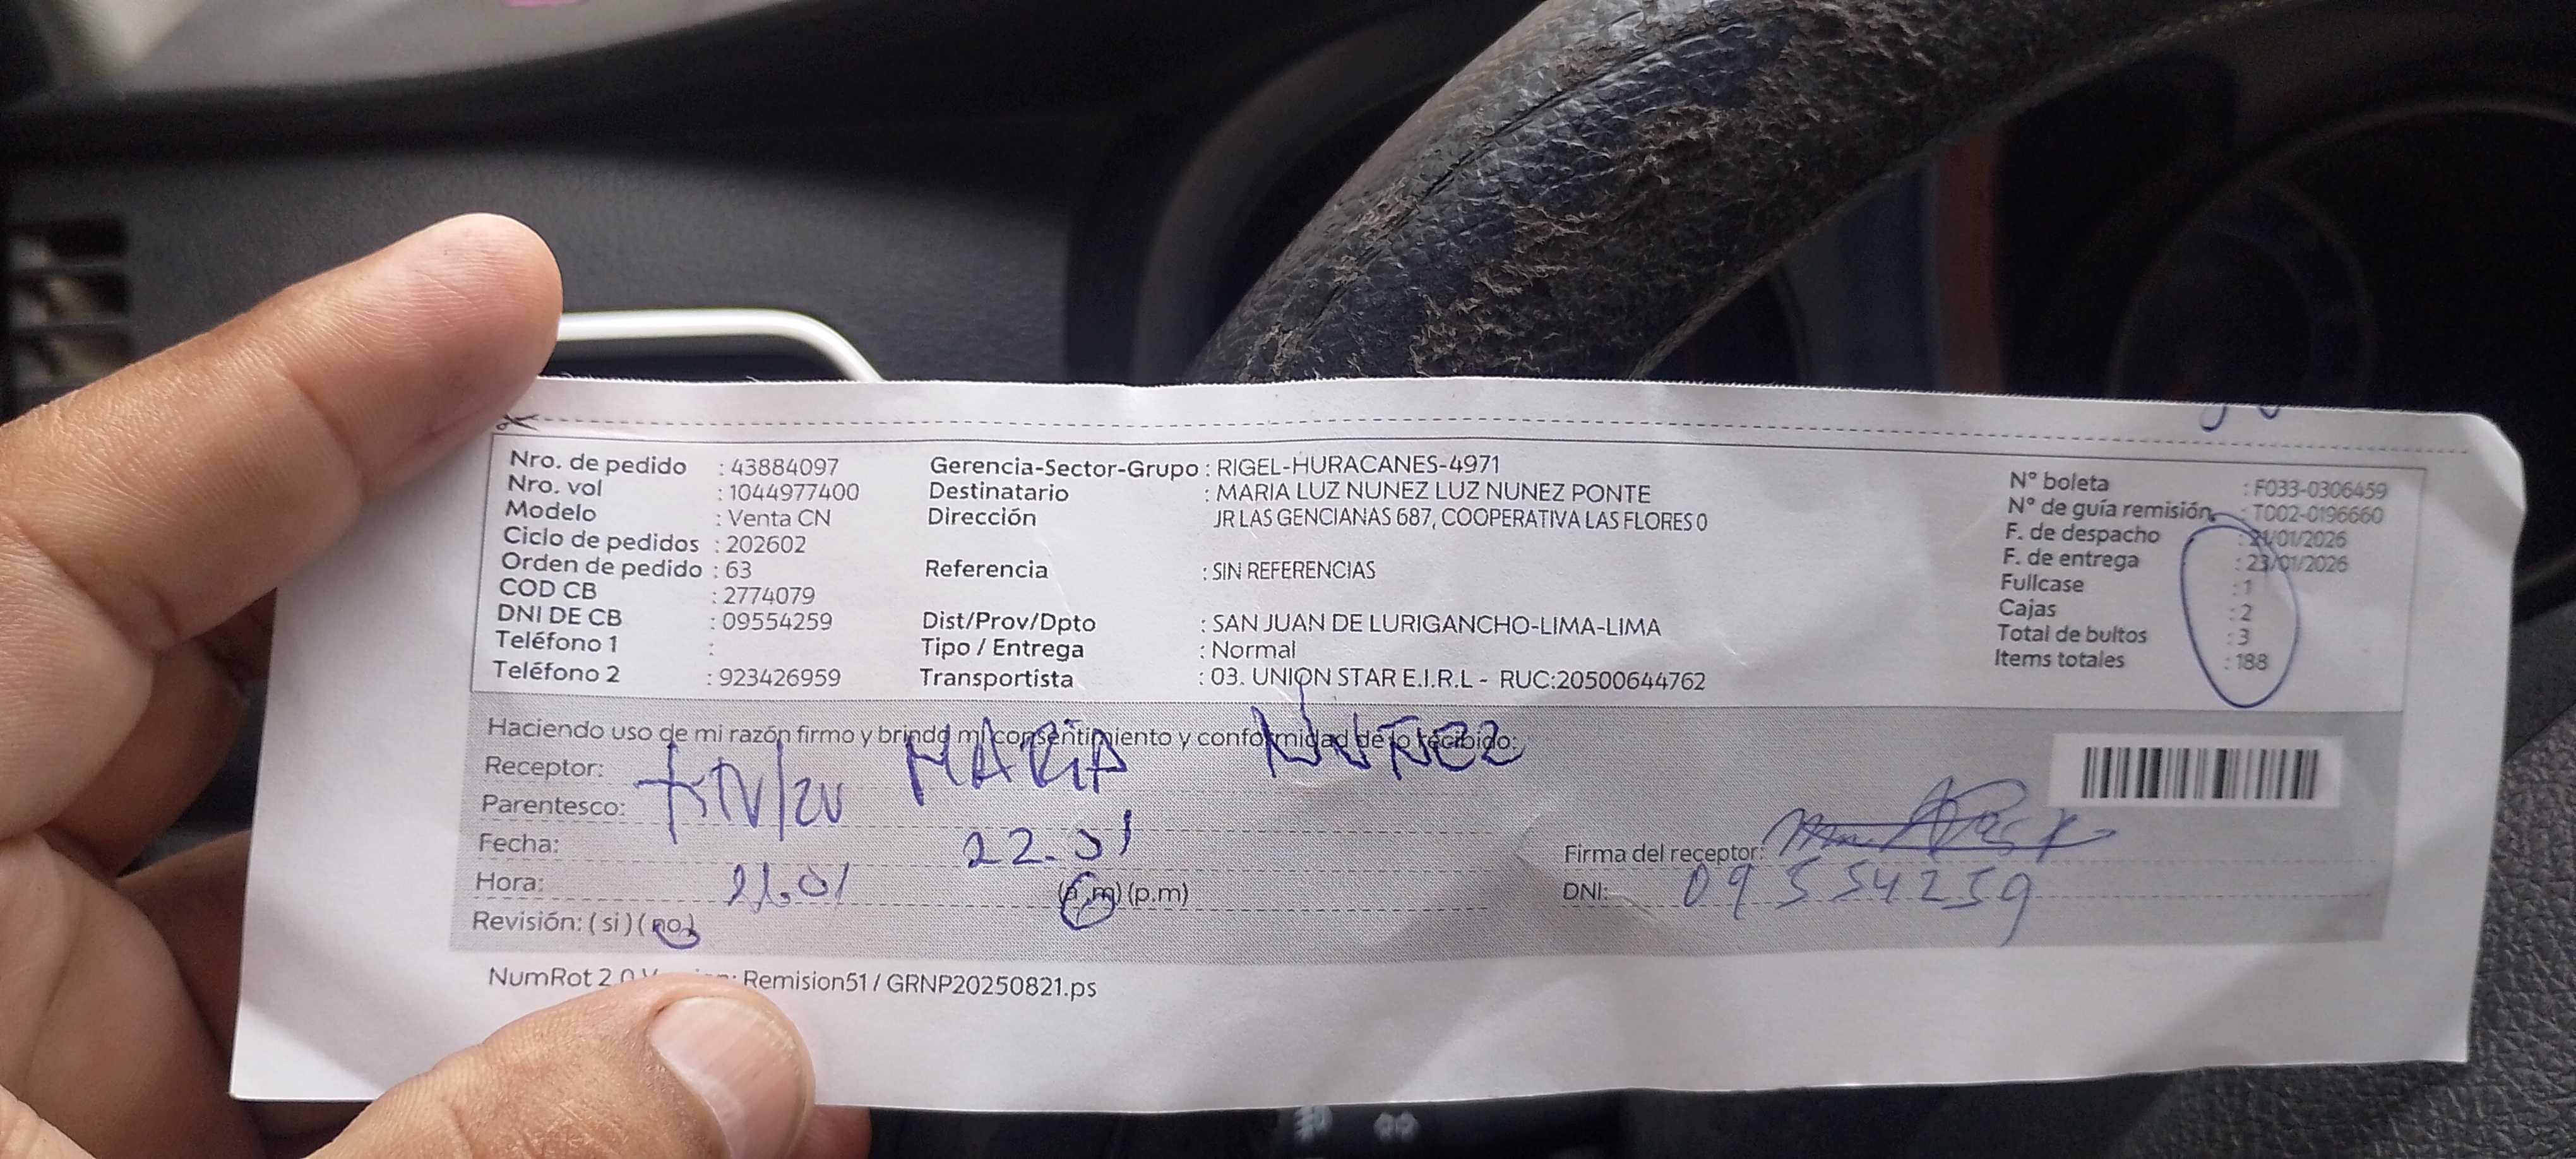 Nro. de pedido : 43884097
Nro. vol : 1044977400
Modelo : Venta CN
Ciclo de pedidos : 202602
Orden de pedido : 63
COD CB : 2774079
DNI DE CB : 09554259
Teléfono 1 :
Teléfono 2 : 923426959
Gerencia-Sector-Grupo : RIGEL-HURACANES-4971
Destinatario : MARIA LUZ NUNEZ LUZ NUNEZ PONTE
Dirección JR LAS GENCIANAS 687, COOPERATIVA LAS FLORES 0
Referencia : SIN REFERENCIAS
Dist/Prov/Dpto : SAN JUAN DE LURIGANCHO-LIMA-LIMA
Tipo / Entrega : Normal
Transportista : 03. UNION STAR E.I.R.L - RUC:20500644762
N° boleta : F033-0306459
N° de guía remisión : T002-0196660
F. de despacho : 21/01/2026
F. de entrega : 23/01/2026
Fullcase : 1
Cajas : 2
Total de bultos : 3
Items totales : 188
Haciendo uso de mi razón firmo y brindo mi consentimiento y conformidad de lo recibido:
Receptor: MARIA NUÑEZ
Parentesco:
Fecha: 22.01
Hora: 11.01 (a.m) (p.m)
Revisión: (si) (no)
Firma del receptor:
DNI: 09554259
NumRot 2.0 Remision51 / GRNP20250821.ps